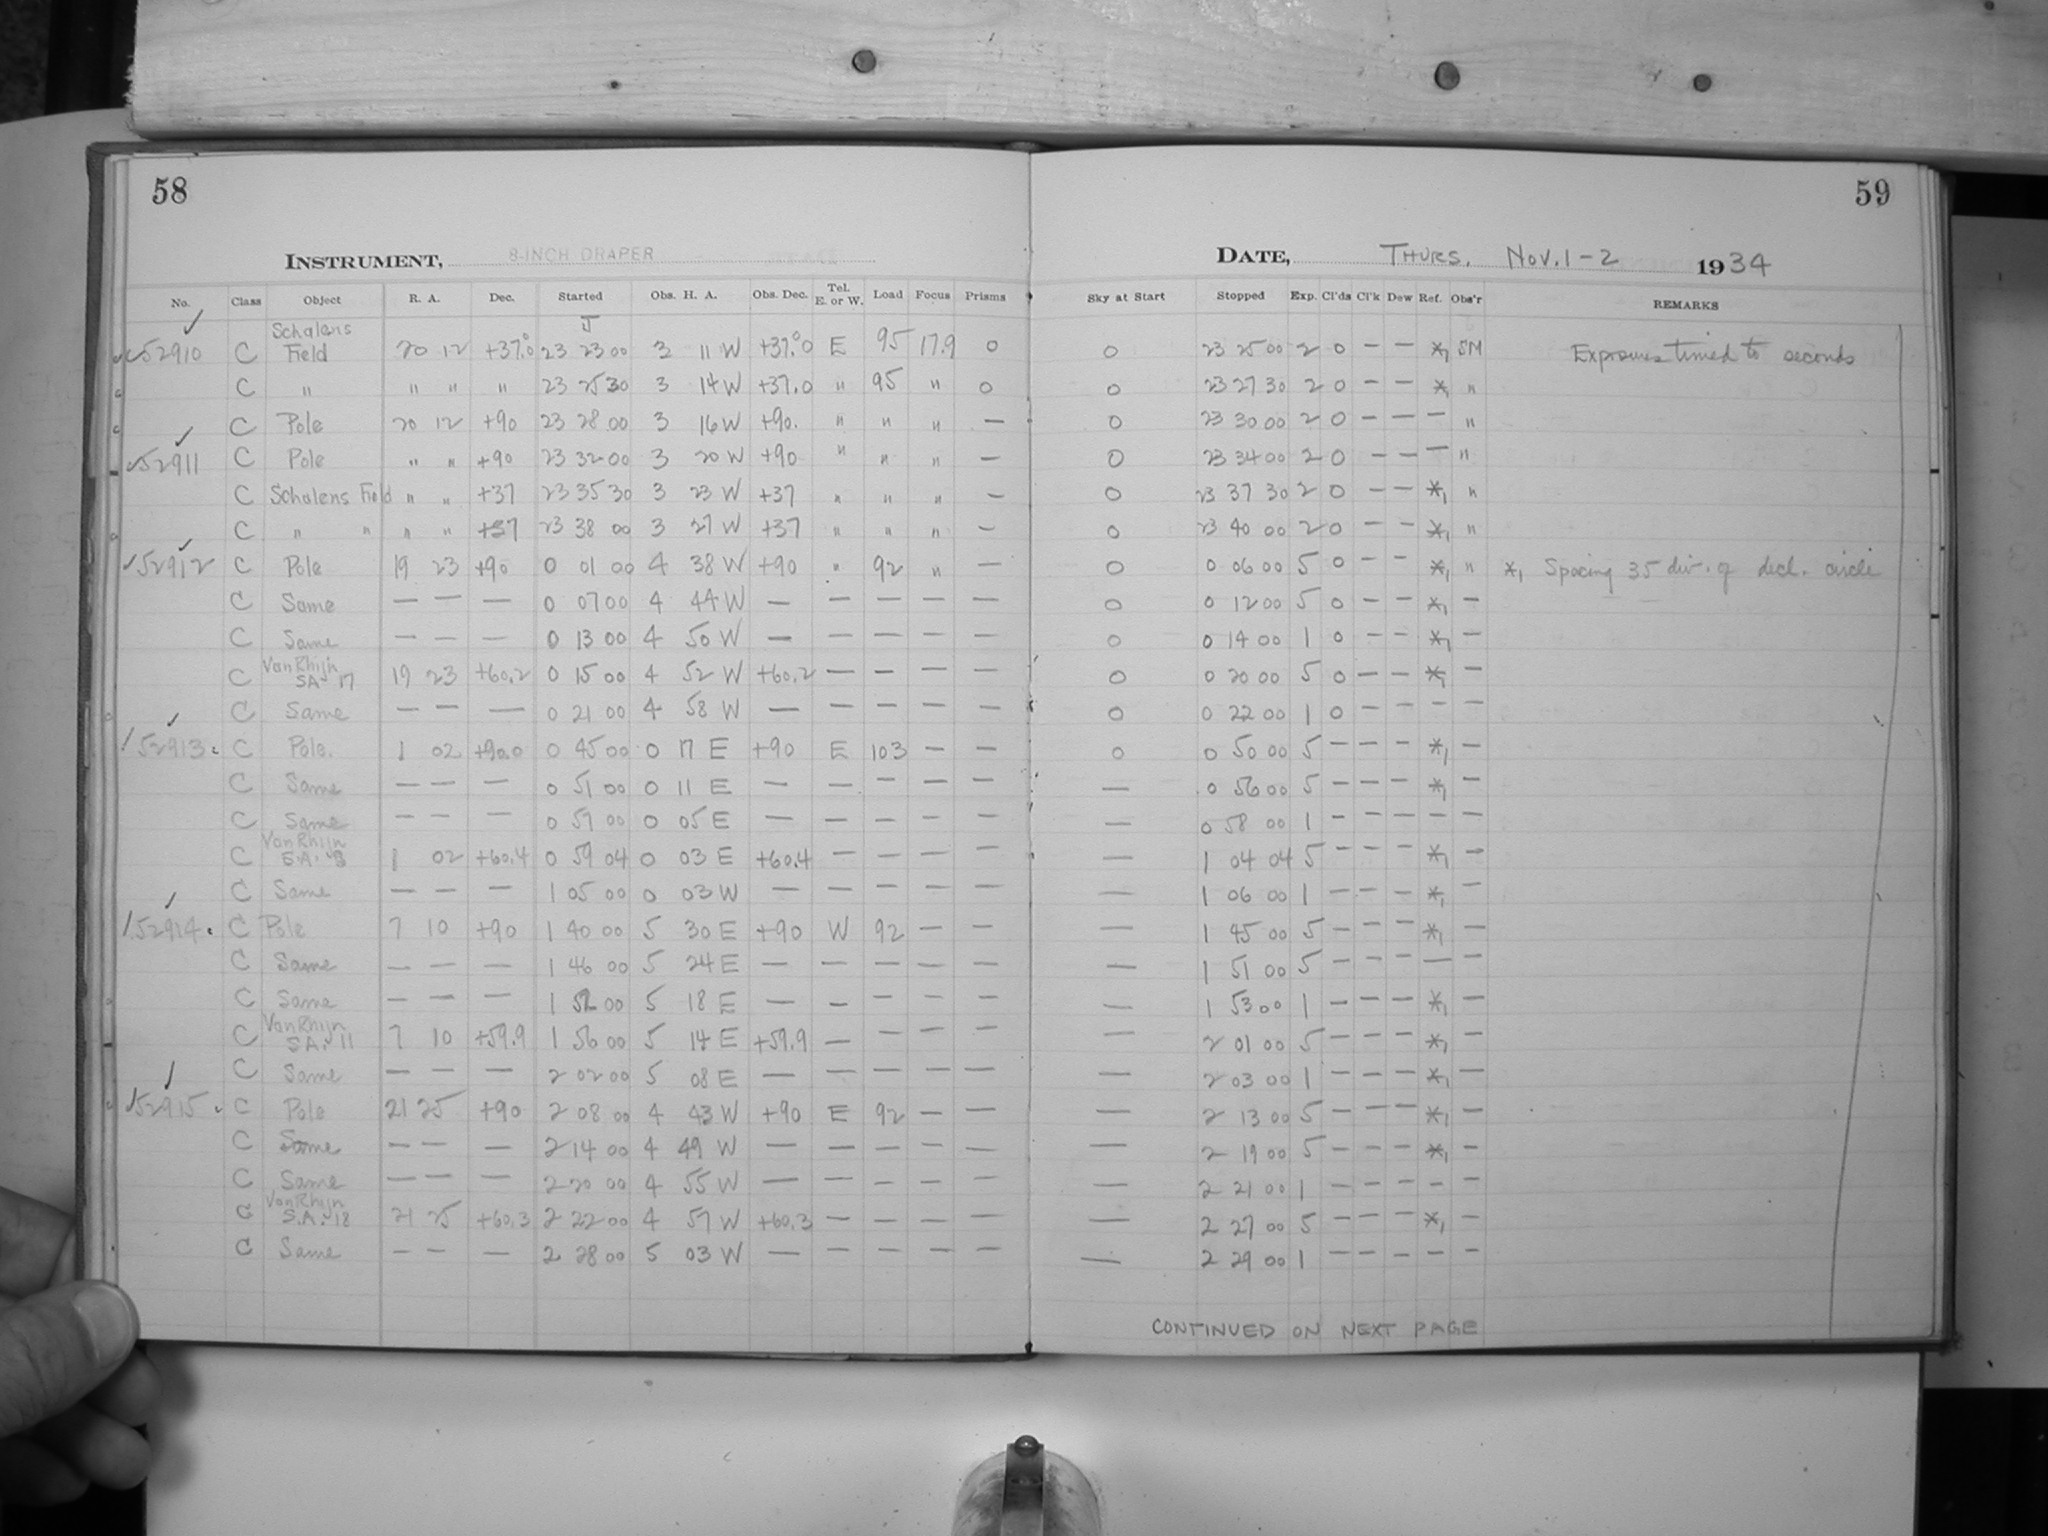 58
INSTRUMENT, 8-INCH DRAPER
No. Class Object R. A. Dec. Started Obs. H. A. Obs. Dec. Tel. E. or W. Load Focus Prisms
J
52910 C Schalens Field 20 12 +37.0 23 23 00 3 11 W +37.0 E 95 17.9 0
C " " " " 23 25 30 3 14 W +37.0 " 95 " 0
C Pole 20 12 +90 23 28 00 3 16 W +90. " " " —
52911 C Pole " " +90 23 32 00 3 20 W +90 " " " —
C Schalens Field " " +37 23 35 30 3 23 W +37 " " " —
C " " " " +37 23 38 00 3 27 W +37 " " " —
52912 C Pole 19 23 +90 0 01 00 4 38 W +90 " 92 " —
C Same — — — 0 07 00 4 44 W — — — — —
C Same — — — 0 13 00 4 50 W — — — — —
C Van Rhijn SA. 17 19 23 +60.2 0 15 00 4 52 W +60.2 — — — —
C Same — — — 0 21 00 4 58 W — — — — —
52913 C Pole. 1 02 +90.0 0 45 00 0 17 E +90 E 103 — —
C Same — — — 0 51 00 0 11 E — — — — —
C Same — — — 0 57 00 0 05 E — — — — —
C Van Rhijn S.A. 8 1 02 +60.4 0 59 04 0 03 E +60.4 — — — —
C Same — — — 1 05 00 0 03 W — — — — —
52914 C Pole 7 10 +90 1 40 00 5 30 E +90 W 92 — —
C Same — — — 1 46 00 5 24 E — — — — —
C Same — — — 1 52 00 5 18 E — — — — —
C Van Rhijn S.A. 11 7 10 +59.9 1 56 00 5 14 E +59.9 — — — —
C Same — — — 2 02 00 5 08 E — — — — —
52915 C Pole 21 25 +90 2 08 00 4 43 W +90 E 92 — —
C Same — — — 2 14 00 4 49 W — — — — —
C Same — — — 2 20 00 4 55 W — — — — —
C Van Rhijn S.A. 18 21 25 +60.3 2 22 00 4 57 W +60.3 — — — —
C Same — — — 2 28 00 5 03 W — — — — —
59
DATE, THURS. NOV. 1-2 1934
Sky at Start Stopped Exp. Cl'ds Cl'k Dew Ref. Obs'r REMARKS
0 23 25 00 2 0 — — *1 SM Exposures timed to seconds
0 23 27 30 2 0 — — *1 "
0 23 30 00 2 0 — — — "
0 23 34 00 2 0 — — — "
0 23 37 30 2 0 — — *1 "
0 23 40 00 2 0 — — *1 "
0 0 06 00 5 0 — — *1 " *1 Spacing 35 div. of decl. circle
0 0 12 00 5 0 — — *1 —
0 0 14 00 1 0 — — *1 —
0 0 20 00 5 0 — — *1 —
0 0 22 00 1 0 — — — —
0 0 50 00 5 — — — *1 —
— 0 56 00 5 — — — *1 —
— 0 58 00 1 — — — — —
— 1 04 04 5 — — — *1 —
— 1 06 00 1 — — — *1 —
— 1 45 00 5 — — — *1 —
— 1 51 00 5 — — — — —
— 1 53 00 1 — — — *1 —
— 2 01 00 5 — — — *1 —
— 2 03 00 1 — — — *1 —
— 2 13 00 5 — — — *1 —
— 2 19 00 5 — — — *1 —
— 2 21 00 1 — — — — —
— 2 27 00 5 — — — *1 —
— 2 29 00 1 — — — — —
CONTINUED ON NEXT PAGE